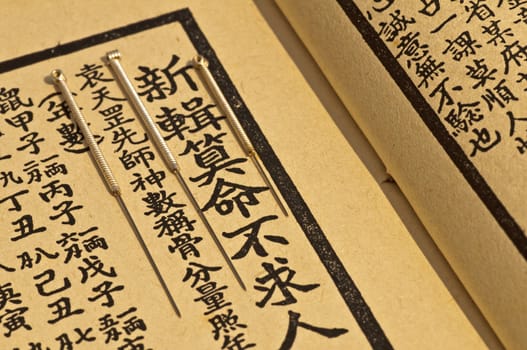 省某府
占一課莫順
誠意無不驗也
新輯算命不求人
袁天罡先師神數稱骨分量照年
鼠甲子 丙子 戊子
九丁丑 八己丑 七
庚寅